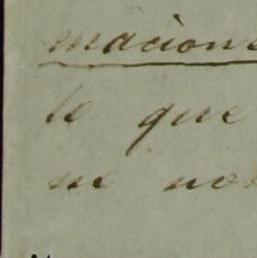 macione
le que
se nos